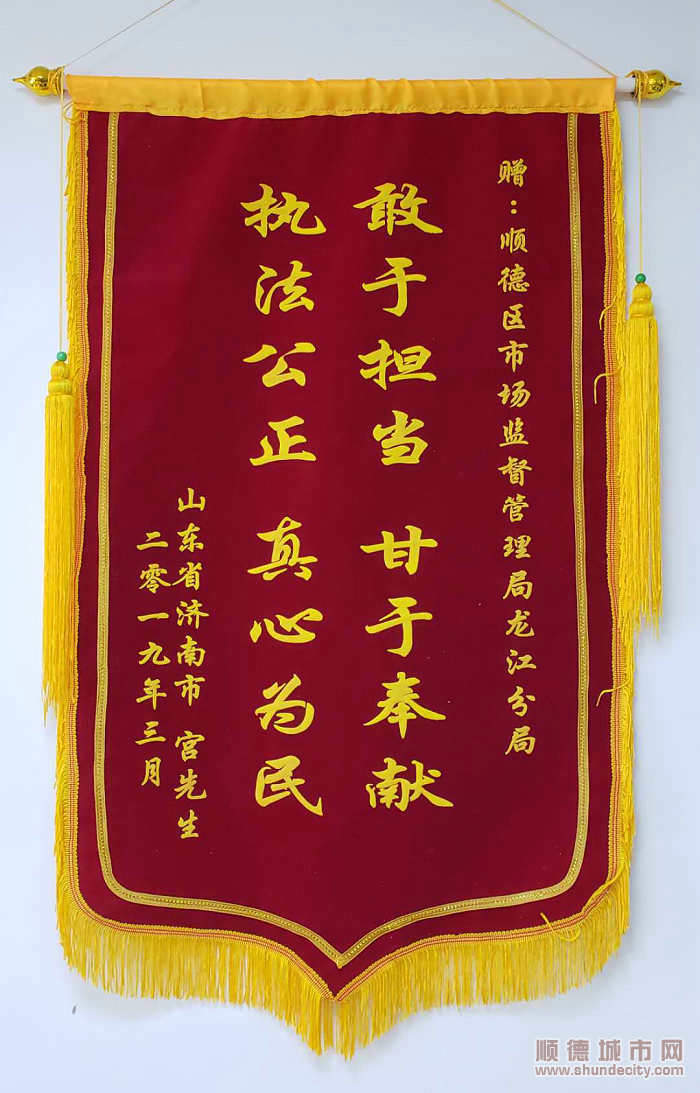 赠：顺德区市场监督管理局龙江分局
敢于担当 甘于奉献
执法公正 真心为民
山东省济南市 宫先生
二零一九年三月
顺德城市网
www.shundecity.com